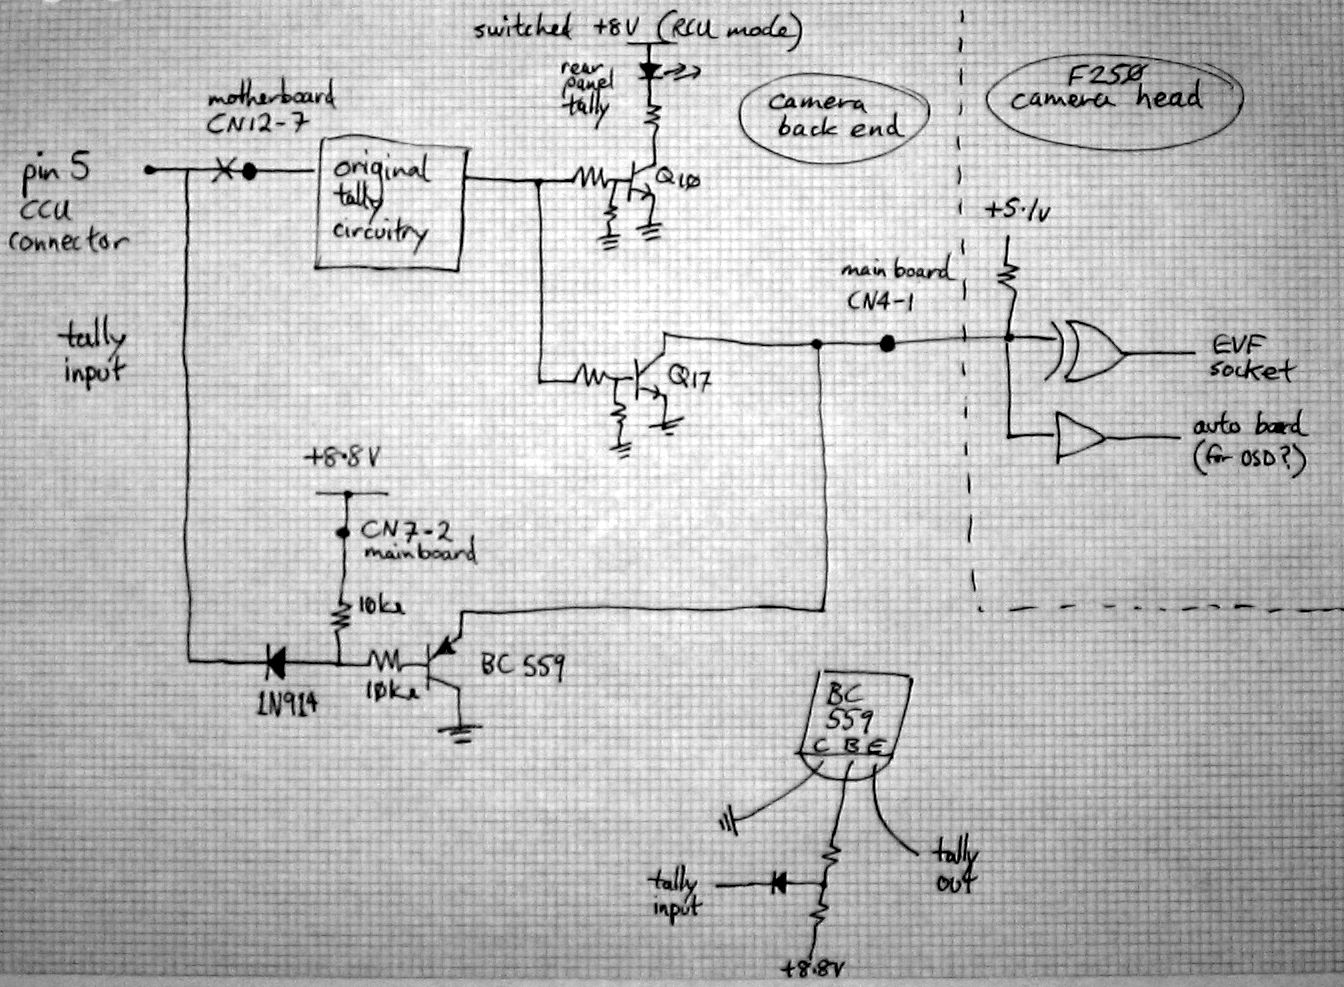 switched +8V (RCU mode)
rear
panel
tally
motherboard
CN12-7
camera
back end
F250
camera head
pin 5
CCU
connector
original
tally
circuitry
Q10
+5.1V
main board
CN4-1
tally
input
Q17
EVF
socket
auto board
(for OSD?)
+8.8V
CN7-2
mainboard
10kΩ
BC 559
10kΩ
1N914
BC
559
C B E
tally
out
tally
input
+8.8V